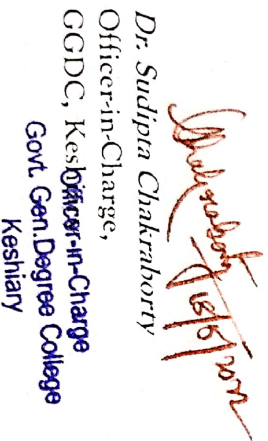 Dr. Sudipta Chakraborty
Officer-in-Charge,
GGDC, Keshiary
Officer-in-Charge
Govt. Gen. Degree College
Keshiary